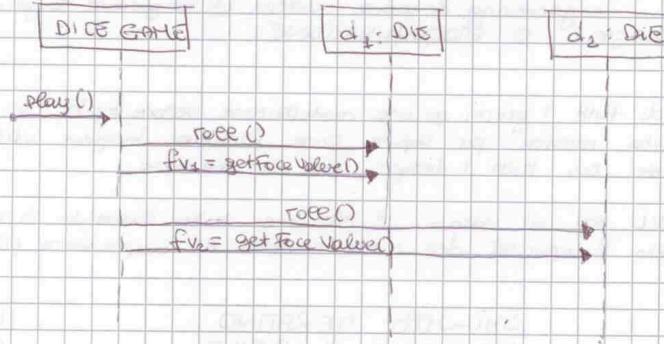 DICE GAME
d1: DIE
d2: DiE
play()
roll()
fv1 = getFaceValue()
roll()
fv2 = getFace Value()